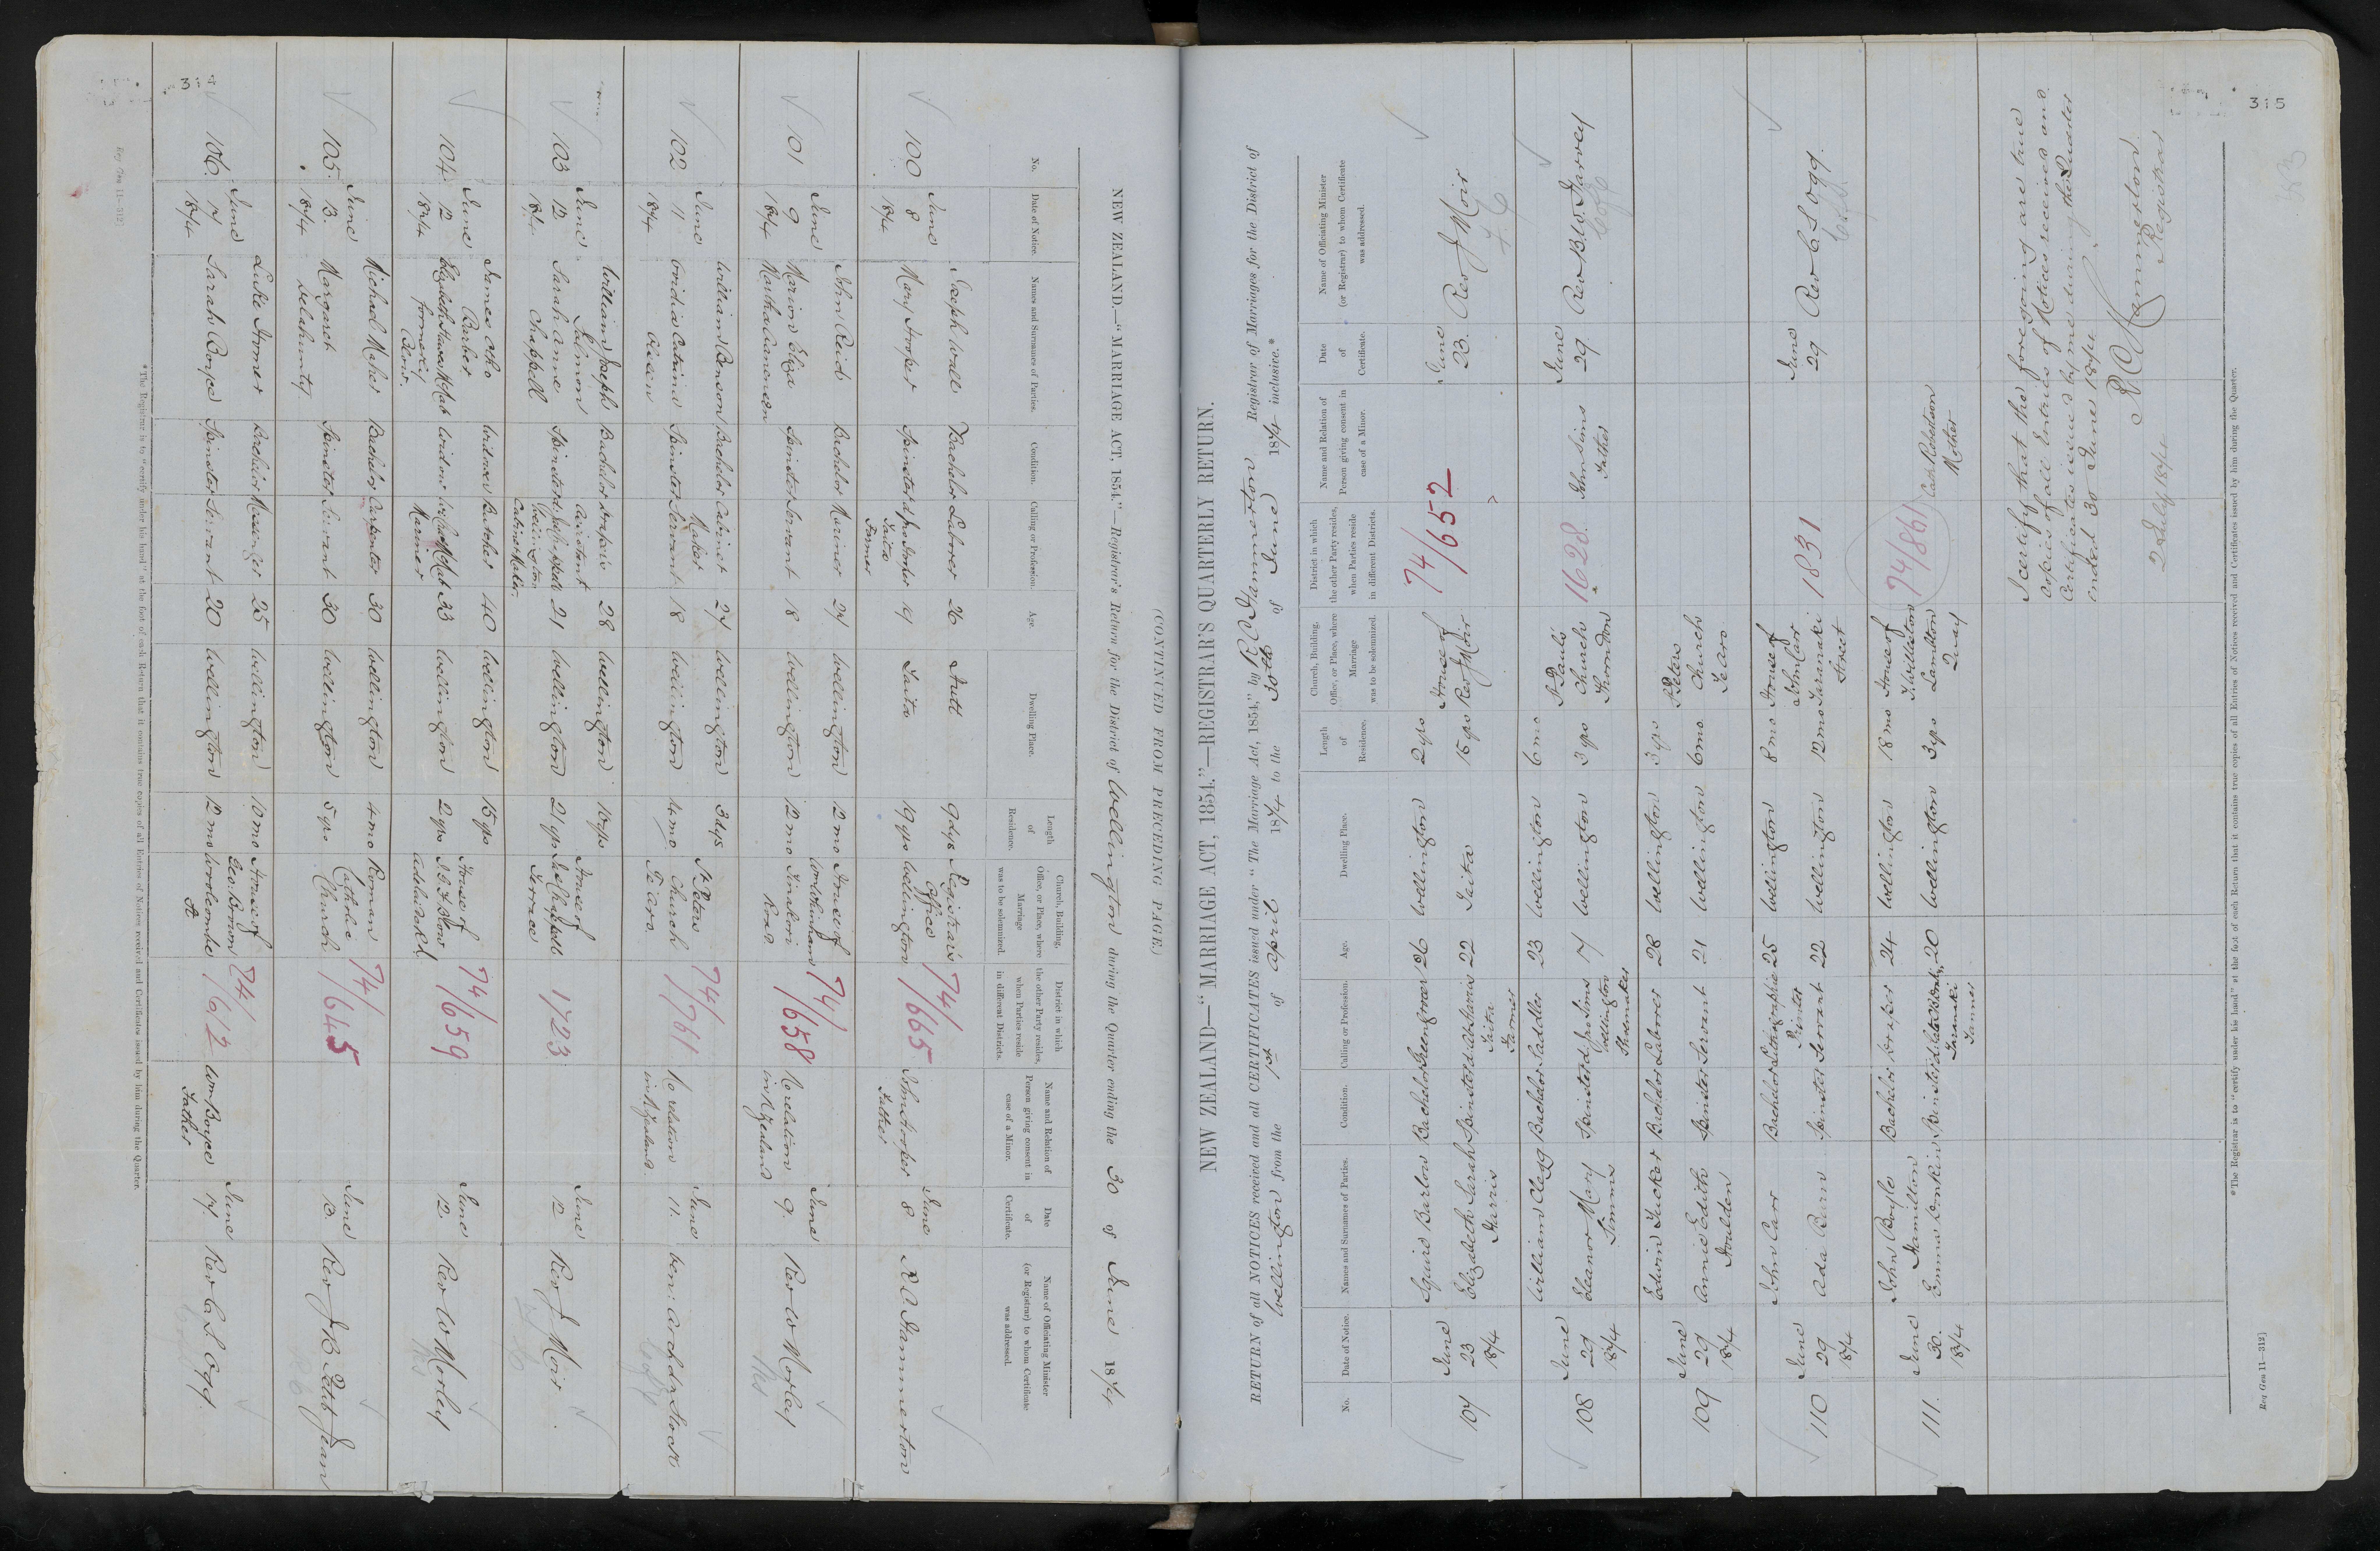 314
(CONTINUED FROM PRECEDING PAGE.)
NEW ZEALAND.—"MARRIAGE ACT, 1854."—Registrar's Return for the District of Wellington during the Quarter ending the 30 of June 1874
No. Date of Notice. Names and Surnames of Parties. Condition. Calling or Profession. Age. Dwelling Place. Length of Residence. Church, Building, Office, or Place, where Marriage was to be solemnized. District in which the other Party resides, when Parties reside in different Districts. Name and Relation of Person giving consent in case of a Minor. Date of Certificate. Name of Officiating Minister (or Registrar) to whom Certificate was addressed.
100 June 8 1874 Joseph Wall Bachelor Laborer 26 Hutt 9 dys Registrar's Office 74/665 June 8 R C Hammerton
Mary Hooper Spinster Taita Farmer 19 Taita 19 yrs Wellington John Hooper Father
101 June 9 1874 John Reid Bachelor Mariner 27 Wellington 12 mo House of Workingham 74/658 No relation in N Zealand June 9. Rev W Morley
Marion Eliza Martha Spinster Servant 18 Wellington 12 mo Tinakori Road
102 June 11 1874 William Benson Bachelor Cabinet Maker 27 Wellington 3 dys St Peters Church Te Aro 74/761 No relation in N Zealand. June 11. Ven: Archdn Stock
Ovidia Catrina Spinster Servant 18 Wellington 4 mo
103 June 12 1874 William Joseph Salmon Bachelor Drapers assistant 28 Wellington 10 yrs House of Terrace 1723 June 12 Rev J Moir
Sarah Anne Chappell Spinster Wellington Cabinet Maker 21 Wellington 21 yrs
104 June 12 1874 James Barber Widower Butcher 40 Wellington 15 yrs House of Adelaide Rd 74/659 June 12. Rev W Morley
Elizabeth McNab formerly Widow Mariner 33 Wellington 2 yrs
105 June 13. 1874 Michael Maher Bachelor Carpenter 30 Wellington 4 mo Roman Catholic Church 74/645 June 13. Rev J B Petitjean
Margaret Delahunty Spinster Servant 30 Wellington 5 yrs
106. June 17 1874 Luke Homer Bachelor 25 Wellington 10 mo House of Geo. Brown 74/612 June 17 Rev C S Ogg
Sarah Boyce Spinster Servant 20 Wellington 12 mo Woolcombe St Wm Boyce Father
*The Registrar is to "certify under his hand" at the foot of each Return that it contains true copies of all Entries of Notices received and Certificates issued by him during the Quarter.
Reg Gen 11—312]
315
NEW ZEALAND—"MARRIAGE ACT, 1854."—REGISTRAR'S QUARTERLY RETURN.
RETURN of all NOTICES received and all CERTIFICATES issued under "The Marriage Act, 1854," by R C Hammerton Registrar of Marriages for the District of
Wellington from the 1st of April 1874 to the 30th of June 1874 inclusive.*
No. Date of Notice. Names and Surnames of Parties. Condition. Calling or Profession. Age. Dwelling Place. Length of Residence. Church, Building, Office, or Place, where Marriage was to be solemnized. District in which the other Party resides, when Parties reside in different Districts. Name and Relation of Person giving consent in case of a Minor. Date of Certificate. Name of Officiating Minister (or Registrar) to whom Certificate was addressed.
107 June 23 1874 Squire Barlow Bachelor Greengrocer 26 Wellington 2 yrs House of Rev J Moir 74/652 June 23. Rev J Moir
Elizabeth Sarah Harris Spinster Taita Farmer 22 Taita 15 yrs
108 June 29 1874 William Clegg Bachelor Saddler 23 Wellington 6 mo St Pauls Church Thorndon 1628 John Sims Father June 29. Rev B. W. Harvey
Eleanor Mary Simms Spinster Wellington Shoemaker 17 Wellington 3 yrs
109 June 29 1874 Edwin Tucker Bachelor Laborer 28 Wellington 3 yrs St Peters Church Te Aro
Annie Edith Houlden Spinster Servant 21 Wellington 6 mo
110 June 29 1874 John Carr Bachelor Lithographic Printer 25 Wellington 8 mo House of John Carr Taranaki Street 1831 June 29 Rev C S Ogg.
Ada Burn Spinster Servant 22 Wellington 12 mo
111. June 30. 1874 John Boyles Hamilton Bachelor Draper 24 Wellington 18 mo House of Lambton Quay 74/861 Robertson Mother
Emma Donkin Spinster Taranaki Farmer 20 Wellington 3 yrs
I certify that the foregoing are true
copies of all Entries of Notices received and
Certificates issued by me during the Quarter
ended 30 June 1874.
R C Hammerton
Registrar
2 July 1874
*The Registrar is to "certify under his hand" at the foot of each Return that it contains true copies of all Entries of Notices received and Certificates issued by him during the Quarter.
Reg Gen 11—312]